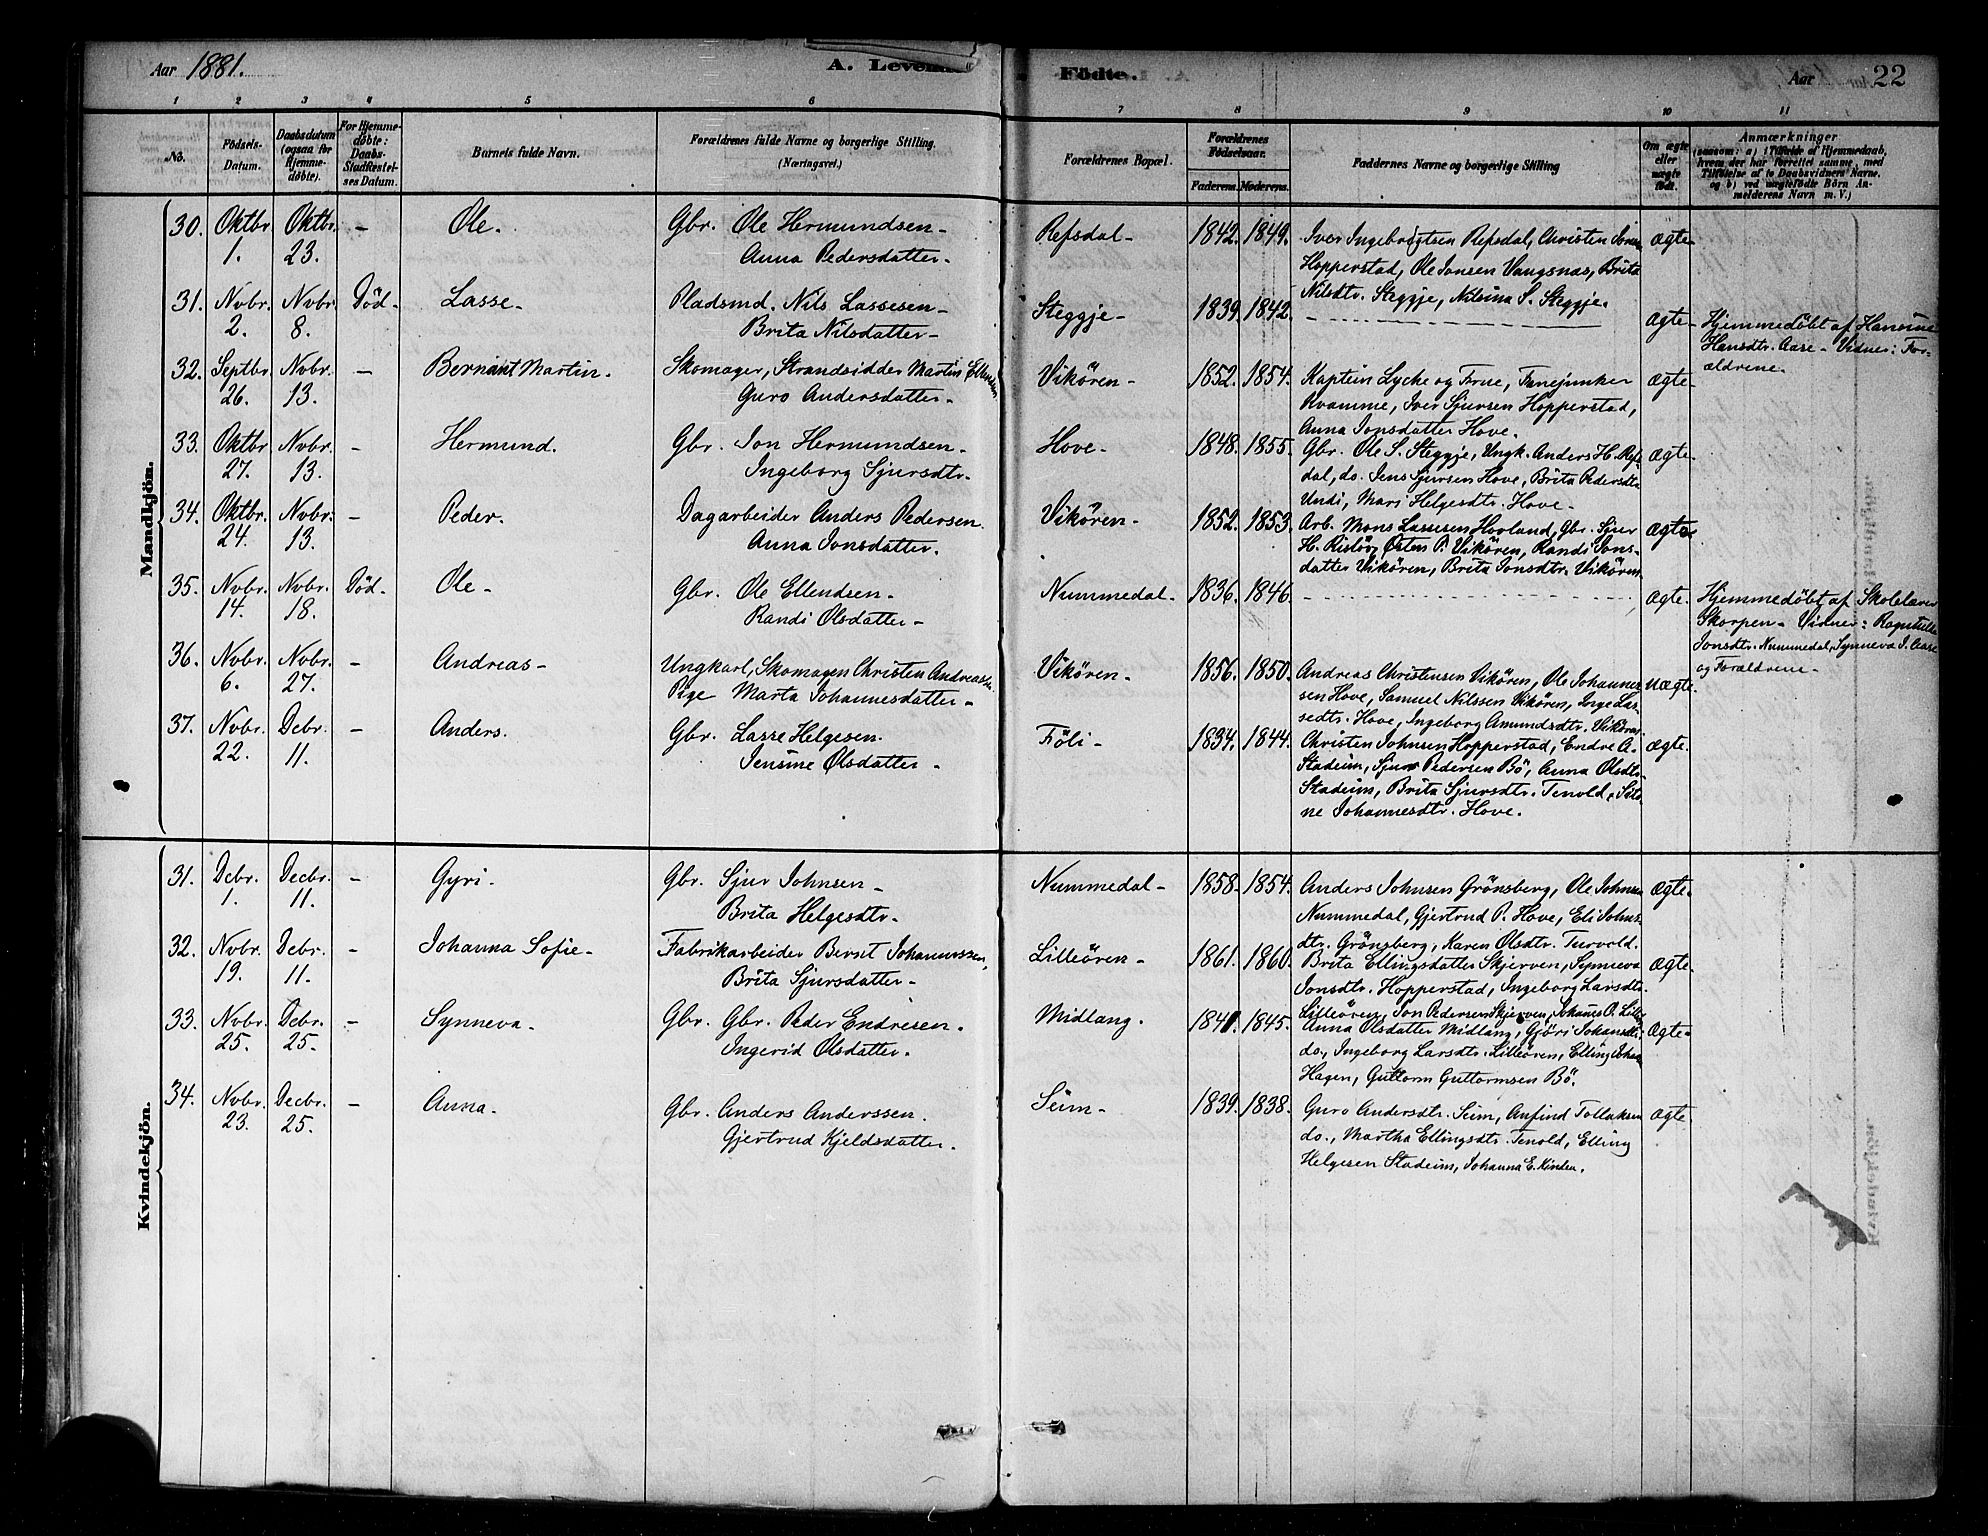 Aar 1881.
A. Levende
Födte.
Aar 22
1 2 3 4 5 6 7 8 9 10 11
No.
Födsels-Datum.
Daabsdatum (ogsaa for Hjemmedöbte).
For Hjemmedöbte: Daabs-Stadfæstelses Datum.
Barnets fulde Navn.
Forældrenes fulde Navne og borgerlige Stilling.
(Næringsvei.)
Forældrenes Bopæl.
Forældrenes Födselsaar.
Faderens. Moderens.
Faddernes Navne og borgerlige Stilling
Om ægte eller uægte födt.
Anmærkninger
(saasom: a) i Tilfælde af Hjemmedaab,
hvem der har forrettet samme, med
Tilföielse af to Daabsvidners Navne,
og b) ved uægtefödte Börn An-
melderens Navn m. V.)
Mandkjön.
30. Oktbr. 1. Oktbr. 23. - Ole. Gbr. Ole Hermundsen-
Anna Pedersdatter-
Refsdal- 1842. 1849. Iver Ingebrigtsen Refsdal, Christen Jons
Hopperstad, Ole Jonsen Vangsnæs, Brita
Nilsdtr. Steggje, Nilsina S. Steggje.
ægte-
31. Nvbr. 2. Nvbr. 8. Död- Lasse- Pladsmd. Nils Lassesen-
Brita Nilsdatter-
Steggje- 1839. 1842. ægte-
Hjemmedöbt af Hansine
Hansdtr. Aase- Vidner: For-
ældrene.
32. Septbr. 26. Nvbr. 13. - Bernant Martin. Skomager, Strandsidder Martin Ellensen
Guro Andersdatter-
Vikören- 1852. 1854. Kaptein Lycke og Frue, Fanejunker
Kvamme, Iver Sjursen Hopperstad,
Anna Jonsdatter Hove.
ægte-
33. Oktbr. 27. Nvbr. 13. - Hermund. Gbr. Jon Hermundsen-
Ingeborg Sjursdtr.
Hove- 1848. 1855. Gbr. Ole S. Steggje, Ungk. Anders H. Refs-
dal, do. Jens Sjursen Hove, Brita Pedersdtr
Undi, Mari Helgesdtr. Hove-
ægte-
34. Oktbr. 24. Nvbr. 13. - Peder. Dagarbeider Anders Pedersen.
Anna Jonsdatter.
Vikören- 1852. 1853. Arb. Mons Lassesen Hovland, Gbr. Sjur
H. Risløv, Østen P. Vikören, Randi Jons-
datter Vikören, Brita Jonsdtr. Vikören
ægte
35. Nvbr. 14. Nvbr. 18. Död. Ole- Gbr. Ole Ellendsen-
Randi Olsdatter-
Nummedal- 1836. 1846. ægte.
Hjemmedöbt af Skolelærer
Skorpen- Vidner: Ragnhilda
Jonsdtr. Nummedal, Synneva J. Aase
og Forældrene-
36. Nvbr. 6. Nvbr. 27. - Andreas- Ungkarl, Skomager Christen Andreass.
Pige Marta Johannesdatter-
Vikören- 1856. 1850. Andreas Christensen Vikören, Ole Johannes-
sen Hove, Samuel Nilssen Vikören, Inge Las-
sedtr. Hove, Ingeborg Amundsdtr. Vikören
uægte
37. Nvbr. 22. Debr. 11. - Anders. Gbr. Lasse Helgesen.
Jensine Olsdatter-
Föli- 1834. 1844. Christen Johnsen Hopperstad, Endre A.
Stadeim, Sjur Pedersen Bö, Anna Olsdtr.
Stadeim, Brita Sjursdtr. Tenold,
ne Johannesdtr. Hove.
ægte.
Kvindekjön.
31. Debr. 1. Decbr. 11. - Gyri- Gbr. Sjur Johnsen-
Brita Helgesdtr.
Nummedal- 1858. 1854. Anders Johnsen Grönsberg, Ole Johnsen
Nummedal, Gjertrud P. Hove, Eli Johns-
dtr. Grönsberg, Karen Olsdtr. Turvold.
ægte-
32. Nvbr. 19. Debr. 11. - Johanna Sofie- Fabrikarbeider Bernt Johannessen,
Brita Sjursdatter-
Lilleören- 1861. 1860. Brita Ellingsdatter Skjerven, Synneva
Jonsdtr. Hopperstad, Ingeborg Larsdtr.
Lilleören, Jon Pedersen Skjerven, Johans O. Lille
ægte-
33. Nvbr. 25. Debr. 25. - Synneva- Gbr. Gbr. Peder Endresen.
Ingerid Olsdatter.
Midlang. 1841. 1845. Anna Olsdatter Midlang, Gjöri Johansdtr.
do., Ingeborg Larsdtr. Lilleören, Elling Johan
Hagen, Guttorm Guttormsen Bö.
Ægte-
34. Nvbr. 23. Decbr. 25. - Anna. Gbr. Anders Anderssen.
Gjertrud Kjeldsdatter.
Seim- 1839. 1838. Guro Andersdtr. Seim, Anfind Tollaksen
do., Martha Ellingsdtr. Tenold, Elling
Helgesen Stadeim, Johanna E. Kinden.
ægte